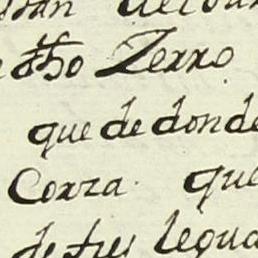 dho Zerro
que de donde
Corza que
de tres legua